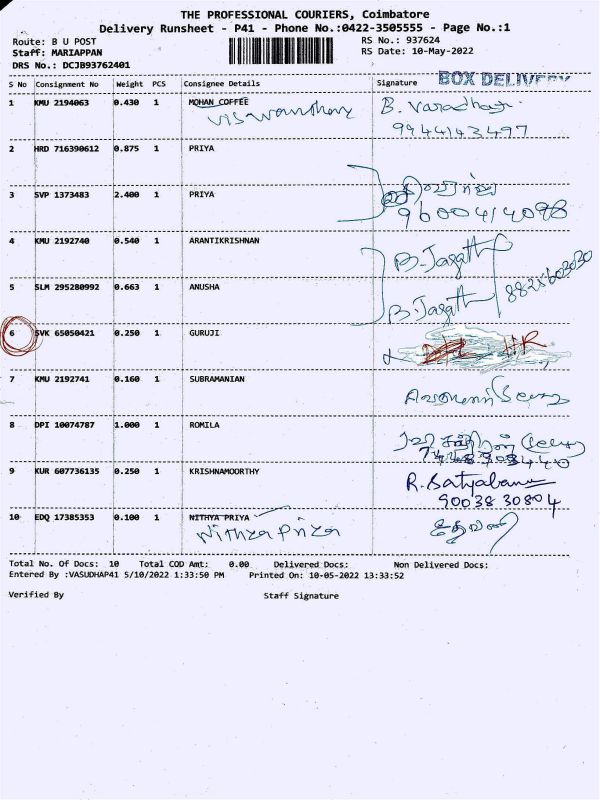 THE PROFESSIONAL COURIERS, Coimbatore
Delivery Runsheet - P41 - Phone No.:0422-3505555 - Page No.:1
Route: B U POST RS No.: 937624
Staff: MARIAPPAN RS Date: 10-May-2022
DRS No.: DCJB93762401
BOX DELIVERY
S No Consignment No Weight PCS Consignee Details Signature
1 KMU 2194063 0.430 1 MOHAN COFFEE B. Varadhaj
9944143497
2 HRD 716390612 0.875 1 PRIYA
3 SVP 1373483 2.400 1 PRIYA
9600414098
4 KMU 2192740 0.540 1 ARANTIKRISHNAN B. Jagath
5 SLM 295280992 0.663 1 ANUSHA B. Jagath
6 SVK 65050421 0.250 1 GURUJI
7 KMU 2192741 0.160 1 SUBRAMANIAN
8 DPI 10074787 1.000 1 ROMILA
9 KUR 607736135 0.250 1 KRISHNAMOORTHY R. Satyabama
9003830804
10 EDQ 17385353 0.100 1 NITHYA PRIYA
Nithya Priya
Total No. Of Docs: 10 Total COD Amt: 0.00 Delivered Docs: Non Delivered Docs:
Entered By :VASUDHAP41 5/10/2022 1:33:50 PM Printed On: 10-05-2022 13:33:52
Verified By Staff Signature